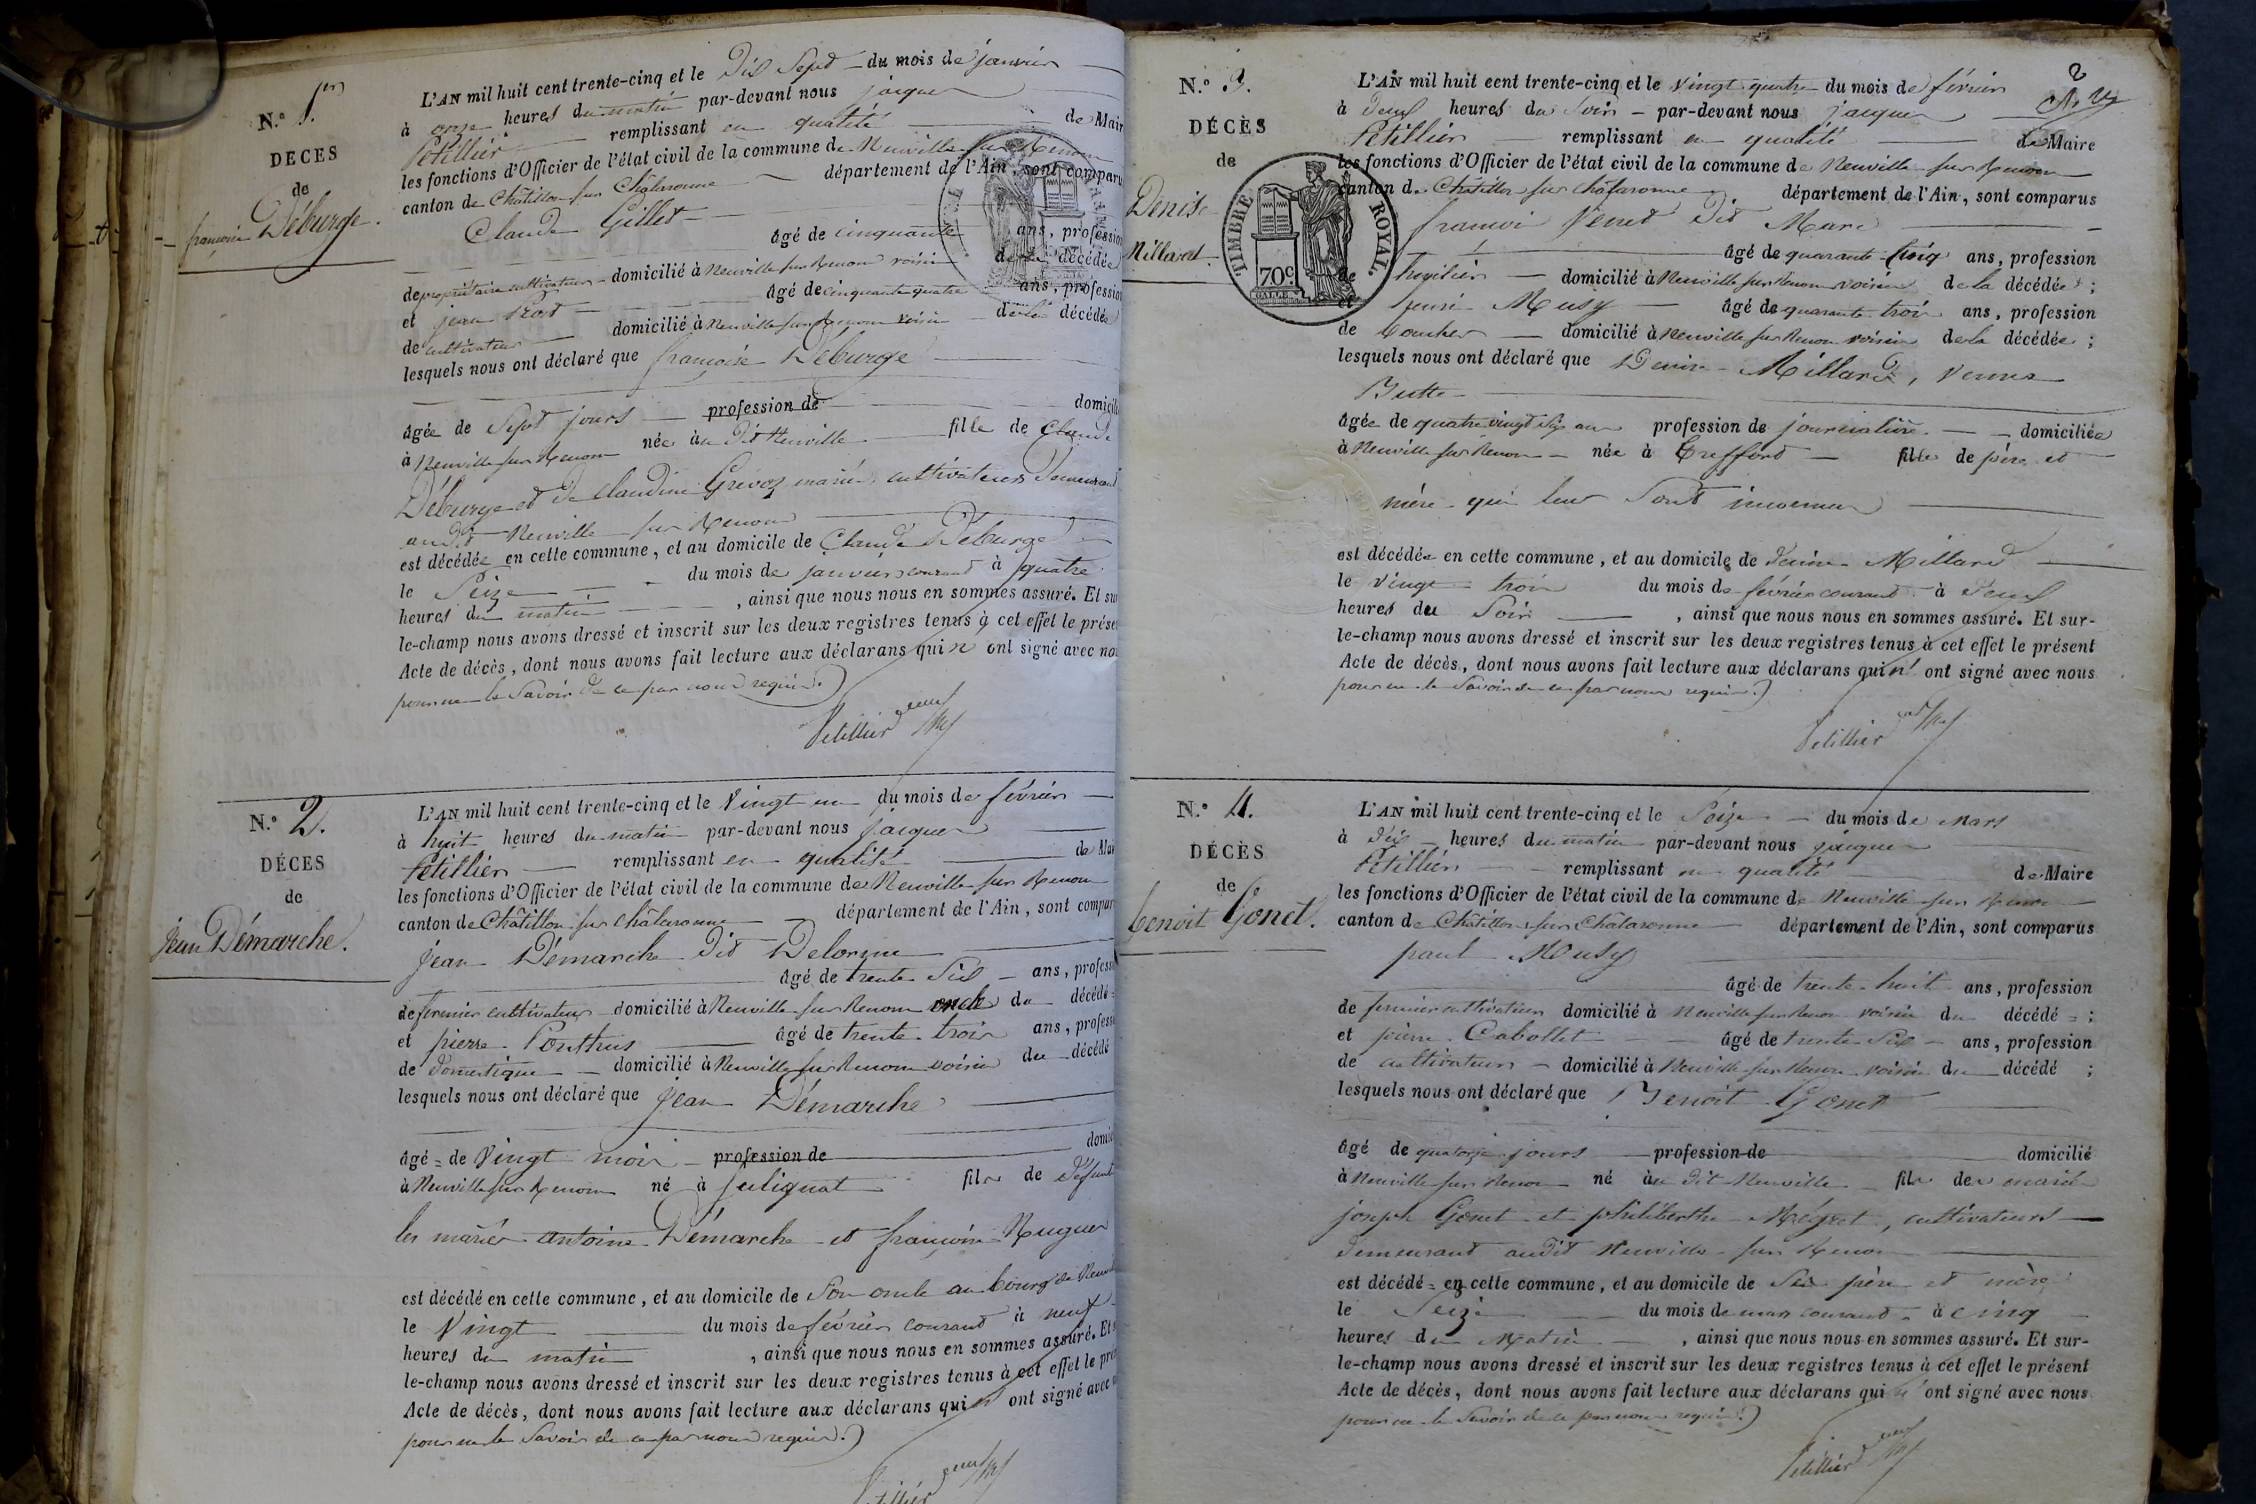 N.o 1.er
DECES
de
françoise Déburge.
L'AN mil huit cent trente-cinq et le Dix Sept du mois de janvier
à onze heures du matin par-devant nous jacques
Petillier remplissant en qualité de Mair
les fonctions d'Officier de l'état civil de la commune de Neuville sur Renom
canton de Châtillon sur Châlaronne département de l'Ain, sont comparu
Claude Gillet
âgé de cinquante ans, profession
de propriétaire cultivateur domicilié à Neuville sur Renom voisin de la décédée
et jean âgé de cinquante quatre ans, profession
de cultivateur domicilié à Neuville sur Renom voisin de la décédée
lesquels nous ont déclaré que françoise Déburge
âgée de Sept jours profession de domicilié
à Neuville sur Renom née au dit Neuville fille de Claude
Déburge et de Claudine Grevoz mariés cultivateurs demeurant
audit Neuville sur Renom
est décédée en cette commune, et au domicile de Claude Déburge
le Seize du mois de janvier courant à quatre
heures du matin, ainsi que nous nous en sommes assuré. Et su
le-champ nous avons dressé et inscrit sur les deux registres tenus à cet effet le prése
Acte de décès, dont nous avons fait lecture aux déclarans qui n' ont signé avec no
pour ne le Savoir de ce par nous requis.
Petillier
N.o 2.
DÉCES
de
jean Démarche.
L'AN mil huit cent trente-cinq et le Vingt un du mois de février
à huit heures du matin par-devant nous jacques
Petillier remplissant en qualité de Mai
les fonctions d'Officier de l'état civil de la commune de Neuville sur Renom
canton de Châtillon sur Châlaronne département de l'Ain, sont compar
jean Démarche dit Delorme
âgé de trente Six ans, profess
de fermier cultivateur domicilié à Neuville sur Renom oncle du décédé
et pierre Ponthus âgé de trente trois ans, profess
de domestique domicilié à Neuville sur Renom voisin du décédé
lesquels nous ont déclaré que jean Démarche
âgé de Vingt mois profession de domic
à Neuville sur Renom né à Sulignat fils de défunt
les mariés antoine Démarche et françoise Nuguer
est décédé en cette commune, et au domicile de Son oncle au bourg de Neuv
le Vingt du mois de février courant à neuf
heures du matin, ainsi que nous nous en sommes assuré. Et s
le-champ nous avons dressé et inscrit sur les deux registres tenus à cet effet le pré
Acte de décès, dont nous avons fait lecture aux déclarans qui n' ont signé avec
pour ne le Savoir de ce par nous requis.
Petillier
2
N.o 3.
DÉCÈS
de
Denise
Millard.
TIMBRE ROYAL.
70c.
L'AN mil huit cent trente-cinq et le Vingt quatre du mois de février
à deux heures du Soir par-devant nous jacques
Petillier remplissant en qualité de Maire
les fonctions d'Officier de l'état civil de la commune de Neuville sur Renom
canton de Châtillon sur Châlaronne département de l'Ain, sont comparus
françois Venet dit Marc
âgé de quarante cinq ans, profession
de domicilié à Neuville sur Renom voisin de la décédée;
et henri Musy âgé de quarante trois ans, profession
de domicilié à Neuville sur Renom voisin de la décédée;
lesquels nous ont déclaré que Denise Millard, veuve
Butte
âgée de quatre vingt Six ans profession de journalière domiciliée
à Neuville sur Renom née à Treffort fille de père et
mère qui leur Sont inconnus
est décédée en cette commune, et au domicile de Denise Millard
le Vingt trois du mois de février courant à deux
heures du Soir, ainsi que nous nous en sommes assuré. Et sur-
le-champ nous avons dressé et inscrit sur les deux registres tenus à cet effet le présent
Acte de décès, dont nous avons fait lecture aux déclarans qui n' ont signé avec nous
pour ne le Savoir de ce par nous requis.
Petillier
N.o 4.
DÉCÈS
de
benoit Gonet.
L'AN mil huit cent trente-cinq et le Seize du mois de Mars
à dix heures du matin par-devant nous jacques
Petillier remplissant en qualité de Maire
les fonctions d'Officier de l'état civil de la commune de Neuville sur Renom
canton de Châtillon sur Châlaronne département de l'Ain, sont comparus
paul Musy
âgé de trente huit ans, profession
de fermier cultivateur domicilié à Neuville sur Renom voisin du décédé;
et pierre Cabottet âgé de trente Six ans, profession
de cultivateur domicilié à Neuville sur Renom voisin du décédé;
lesquels nous ont déclaré que Benoit Gonet
âgé de quatorze jours profession de domicilié
à Neuville sur Renom né au dit Neuville fils des mariés
joseph Gonet et philiberthe Mégret, cultivateurs
demeurant audit Neuville sur Renom
est décédé en cette commune, et au domicile de Ses père et mère
le Seize du mois de mars courant à cinq
heures du Matin, ainsi que nous nous en sommes assuré. Et sur-
le-champ nous avons dressé et inscrit sur les deux registres tenus à cet effet le présent
Acte de décès, dont nous avons fait lecture aux déclarans qui n' ont signé avec nous
pour ne le Savoir de ce par nous requis.
Petillier